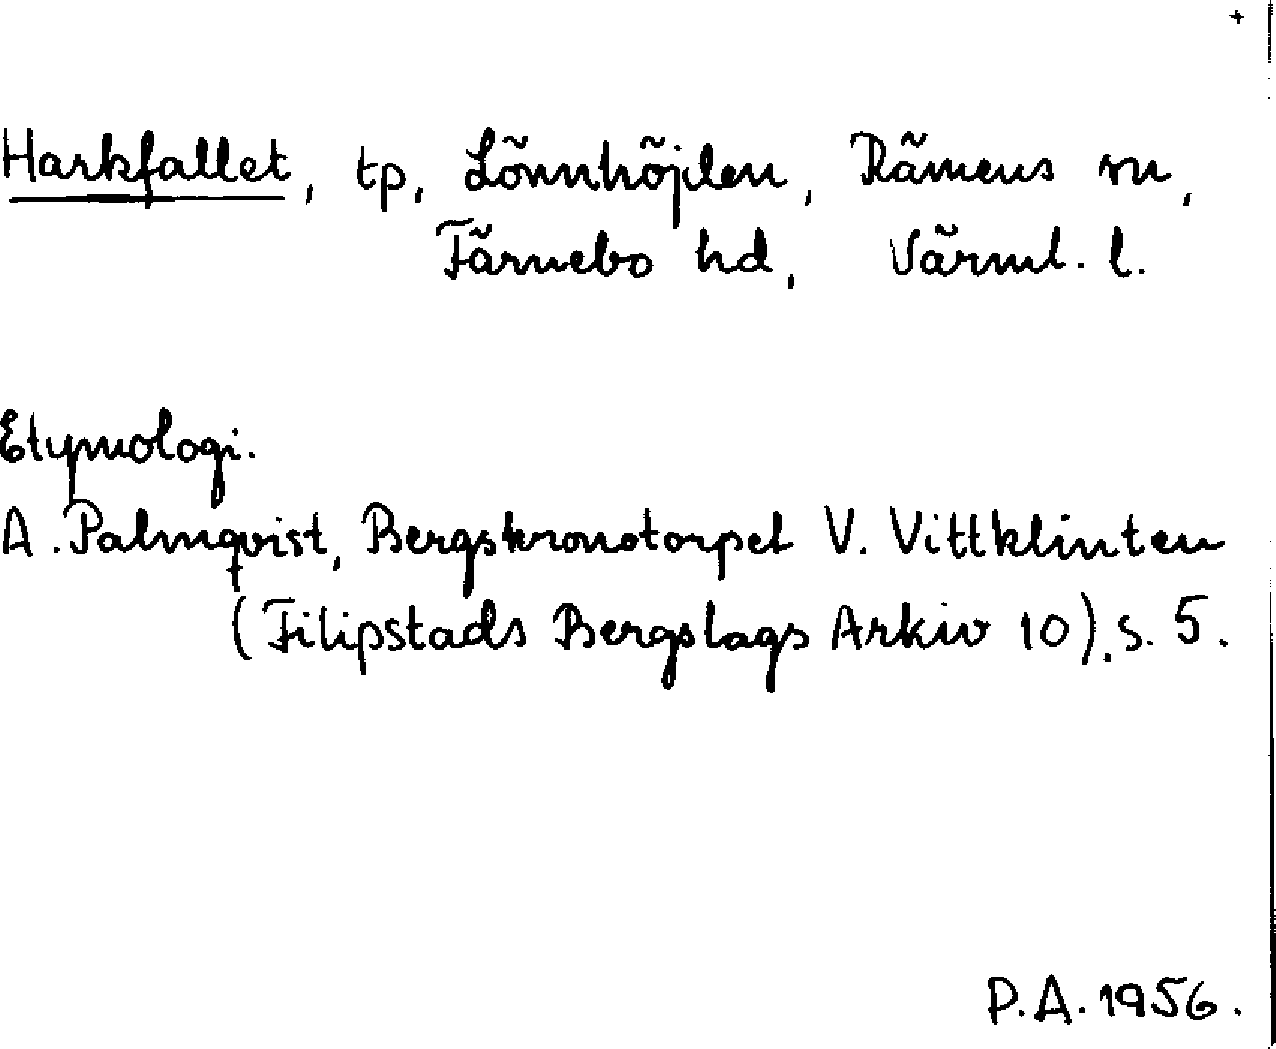 +
Harkfallet, tp, Lönnhöjden, Rämens sn,
Färnebo hd, Värml. l.
Etymologi.
A. Palmqvist, Bergskronotorpet V. Vittklinten
(Filipstads Bergslags Arkiv 10), s. 5.
P.A. 1956.